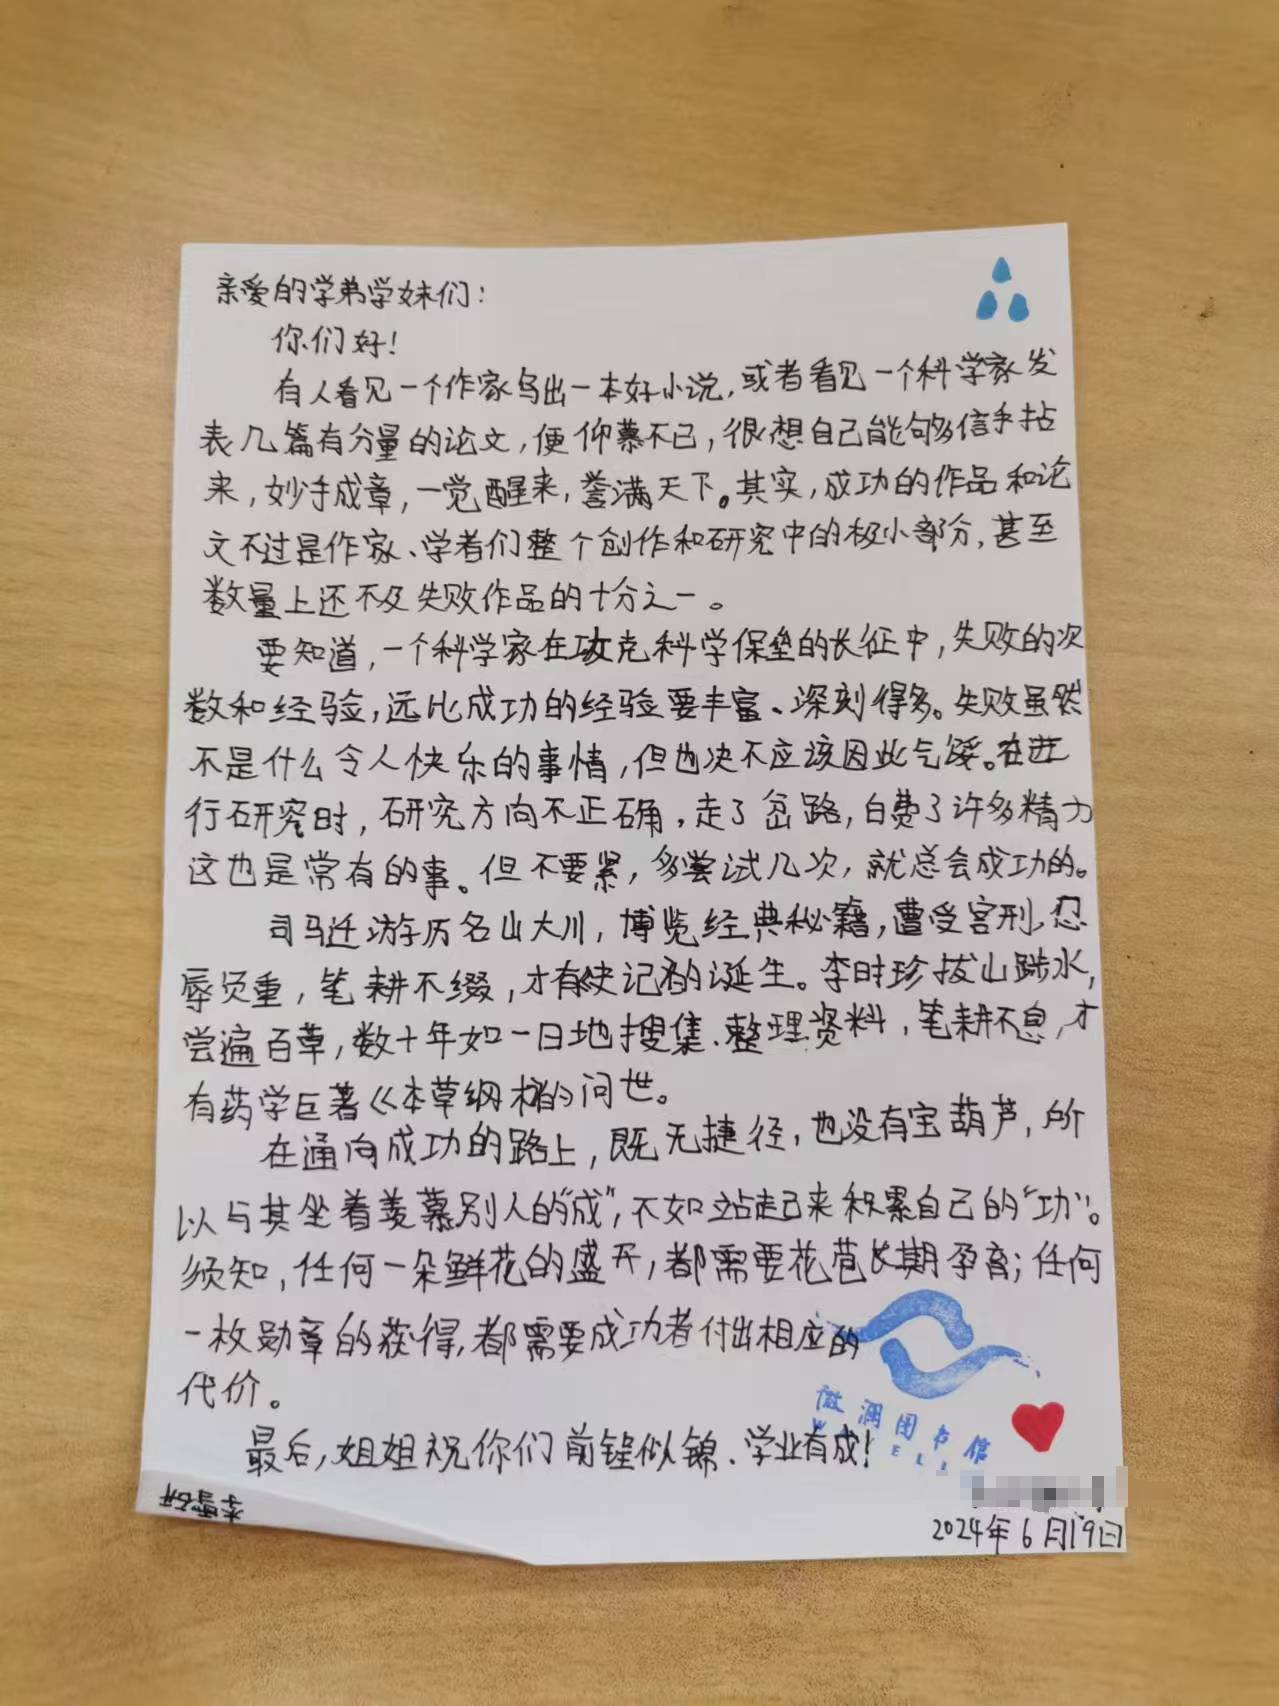 亲爱的学弟学妹们:
你们好!
有人看见一个作家写出一本好小说,或者看见一个科学家发
表几篇有分量的论文,便仰慕不已,很想自己能够信手拈
来,妙手成章,一觉醒来,誉满天下。其实,成功的作品和论
文不过是作家、学者们整个创作和研究中的极小部分,甚至
数量上还不及失败作品的十分之一。
要知道,一个科学家在攻克科学保垒的长征中,失败的次
数和经验,远比成功的经验要丰富、深刻得多。失败虽然
不是什么令人快乐的事情,但也决不应该因此气馁。在进
行研究时,研究方向不正确,走了岔路,白费了许多精力
这也是常有的事。但不要紧,多尝试几次,就总会成功的。
司马迁游历名山大川,博览经典秘籍,遭受宫刑,忍
辱负重,笔耕不缀,才有《史记》的诞生。李时珍拔山踄水,
尝遍百草,数十年如一日地搜集、整理资料,笔耕不息,才
有药学巨著《本草纲目》的问世。
在通向成功的路上,既无捷径,也没有宝葫芦,所
以与其坐着羡慕别人的“成”,不如站起来积累自己的“功”。
须知,任何一朵鲜花的盛开,都需要花苞长期孕育;任何
一枚勋章的获得,都需要成功者付出相应的
代价。
微润团书信
最后,姐姐祝你们前锃似锦、学业有成!
李雪研
2024年6月19日